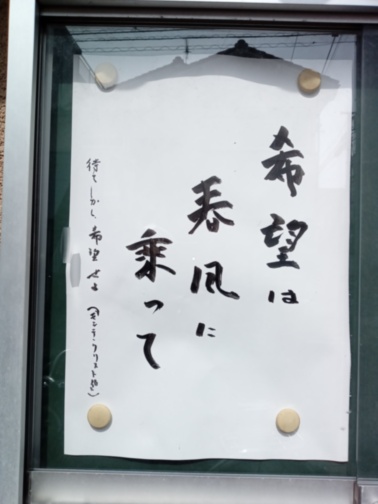 希望は
春風に
乗って
待て しかし 希望せよ (モンテ・クリスト伯)